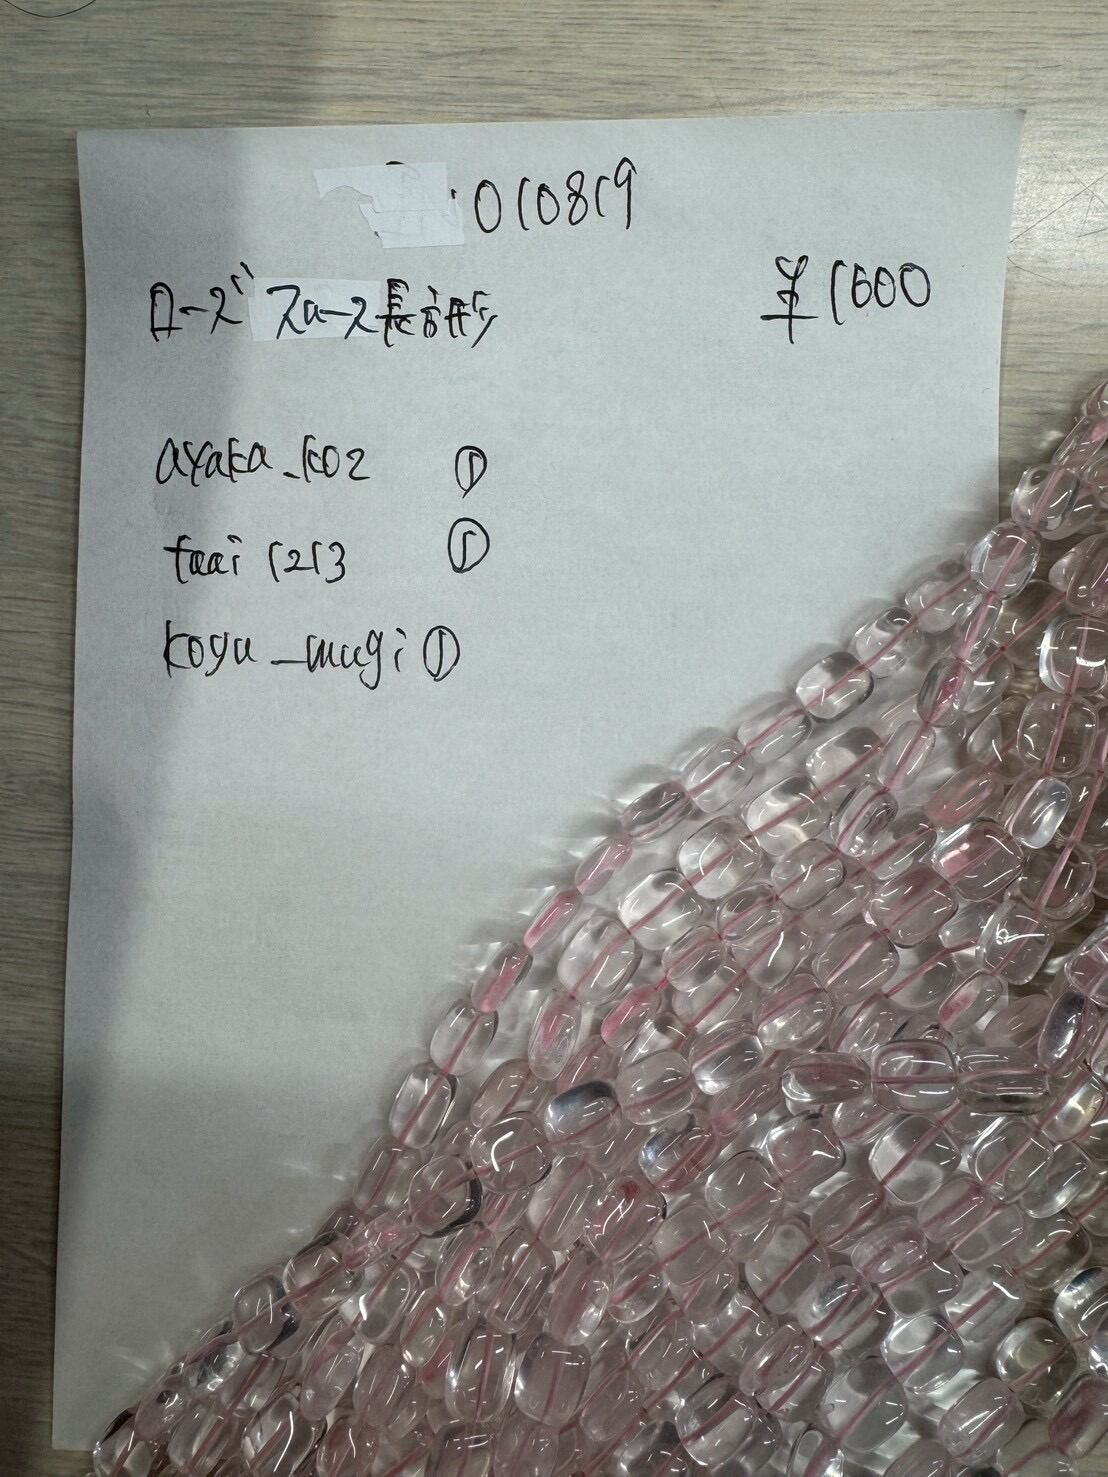 010819
ローズ スロース長方形
¥1600
ayaka_ko2 ①
taai 1213 ①
koyu_mugi ①